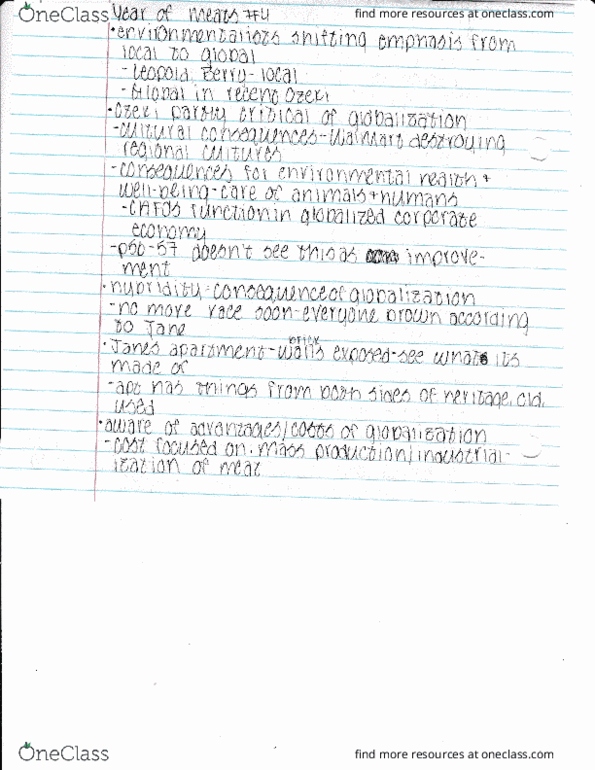 OneClass
find more resources at oneclass.com
Year of Meats #4
•environmentalists shifting emphasis from
local to global
-Leopold, Berry-local
-Global in recent Ozeki
•Ozeki partly critical of globalization
-cultural consequences-Walmart destroying
regional cultures
-consequences for environmental health +
well-being-care of animals+humans
-CAFOS function in globalized corporate
economy
-p56-57 doesn't see this as improve-
ment
•hybridity-consequence of globalization
-no more race soon-everyone brown according
to Jane
•Jane's apartment-brick walls exposed-see what its
made of
-apt has things from both sides of heritage, old,
used
•aware of advantages/costs of globalization
-cost focused on: mass production/industrial-
ization of meat
OneClass
find more resources at oneclass.com